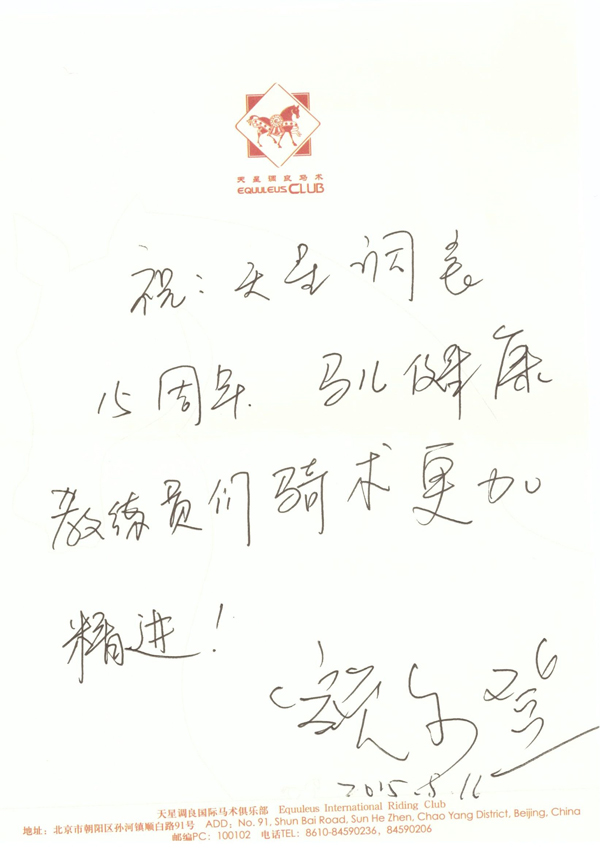 天星调良马术
EQUULEUS CLUB
祝：天星调良
15周年 马儿健康
教练员们骑术更加
精进！
2015.8.16
天星调良国际马术俱乐部 Equuleus International Riding Club
地址：北京市朝阳区孙河镇顺白路91号 ADD: No. 91, Shun Bai Road, Sun He Zhen, Chao Yang District, Beijing, China
邮编PC: 100102 电话TEL: 8610-84590236, 84590206